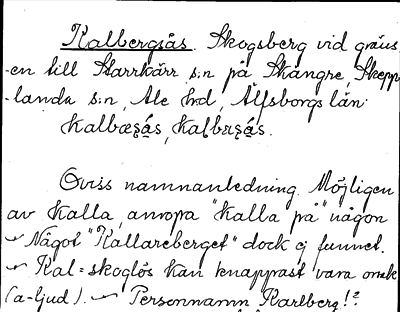 Kalbergsås. Skogsberg vid gräns
-en till Starrkärr s:n på Skångre, Skepp
-landa s:n, Ale hd, Älfsborgs län.
Kalbæsås, Kalbæsås.
Oviss namnanledning. Möjligen
av kalla, anropa "kalla på" någon
Något "Kallareberget" dock ej funnet.
Kal = skoglös kan knappast vara
(a-ljud). Personnamn Karlberg!?